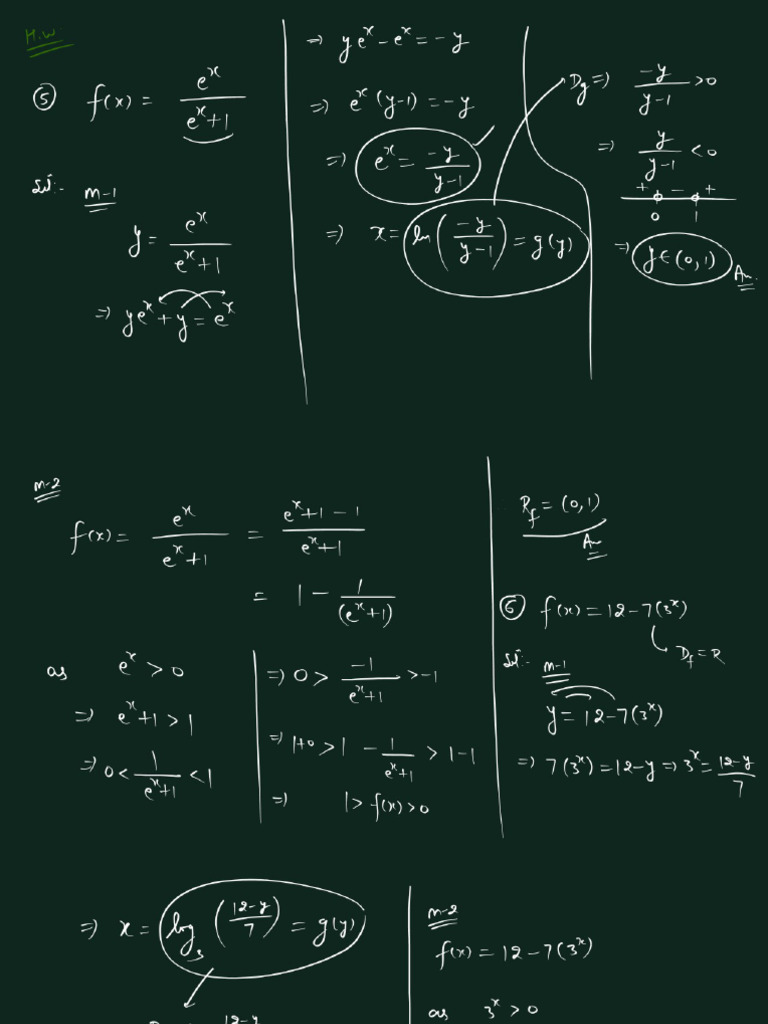 H.W.
⑤ f(x) = e^x/(e^x+1)
Sol:- M-1
y = e^x/(e^x+1)
⇒ ye^x + y = e^x
⇒ ye^x - e^x = -y
⇒ e^x (y-1) = -y
⇒ e^x = -y/(y-1)
⇒ x = ln(-y/(y-1)) = g(y)
Dg ⇒ -y/(y-1) > 0
⇒ y/(y-1) < 0
+ - +
0 1
⇒ y ∈ (0,1)
Ans.
M-2
f(x) = e^x/(e^x+1) = (e^x+1-1)/(e^x+1)
= 1 - 1/(e^x+1)
as e^x > 0
⇒ e^x+1 > 1
⇒ 0 < 1/(e^x+1) < 1
⇒ 0 > -1/(e^x+1) > -1
⇒ 1+0 > 1 - 1/(e^x+1) > 1-1
⇒ 1 > f(x) > 0
R_f = (0,1)
Ans
⑥ f(x) = 12-7(3^x)
D_f = R
Sol:- M-1
y = 12-7(3^x)
⇒ 7(3^x) = 12-y ⇒ 3^x = (12-y)/7
⇒ x = log_3((12-y)/7) = g(y)
12-y
M-2
f(x) = 12-7(3^x)
as 3^x > 0